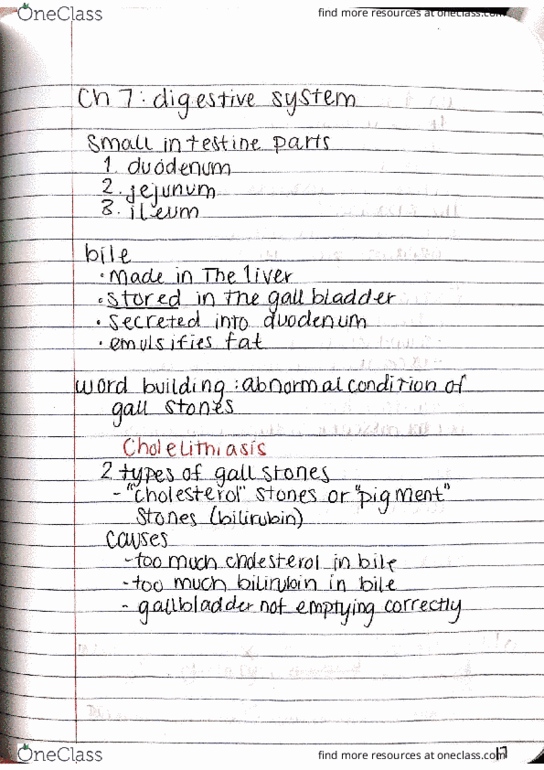 OneClass
find more resources at oneclass.com
Ch 7: digestive system
Small intestine parts
1. duodenum
2. jejunum
3. ileum
bile
• Made in The liver
• stored in the gall bladder
• secreted into duodenum
• emulsifies fat
word building: abnormal condition of
gall stones
Cholelithiasis
2 types of gall stones
- "cholesterol" stones or "pigment"
stones (bilirubin)
causes
- too much cholesterol in bile
- too much bilirubin in bile
- gallbladder not emptying correctly
OneClass
find more resources at oneclass.com
17